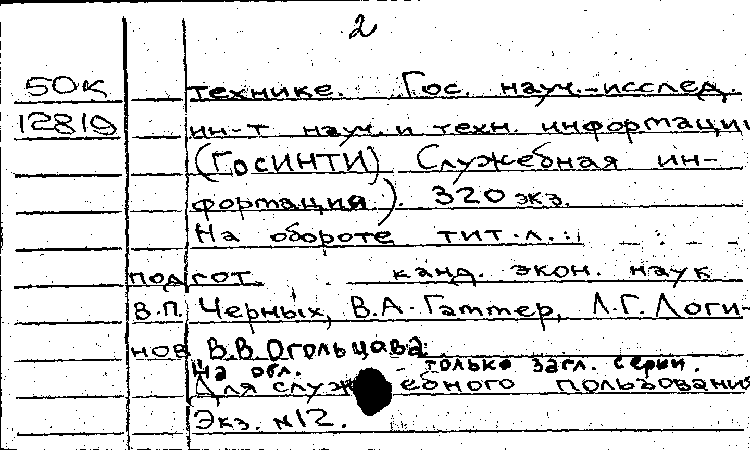 2
50к технике. Гос. науч.-исслед.
12819 ин-т науч. и техн. информации
(ГОСИНТИ) Служебная ин-
формация). 320 экз.
На обороте тит. л.:
подгот. канд. экон. наук
В.П. Черных, В.А. Гаттер, Л.Г. Логи-
нов В.В. Огольцова
На обл. - только загл. серии.
Для служебного пользования
Экз. №12.